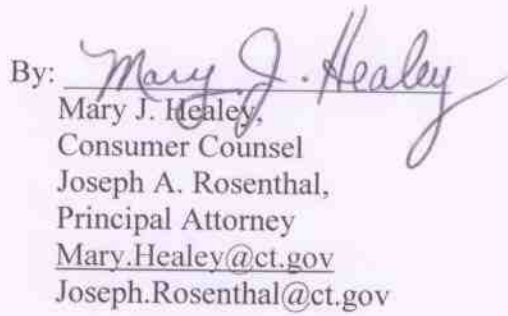 By: Mary J. Healey
Mary J. Healey,
Consumer Counsel
Joseph A. Rosenthal,
Principal Attorney
Mary.Healey@ct.gov
Joseph.Rosenthal@ct.gov